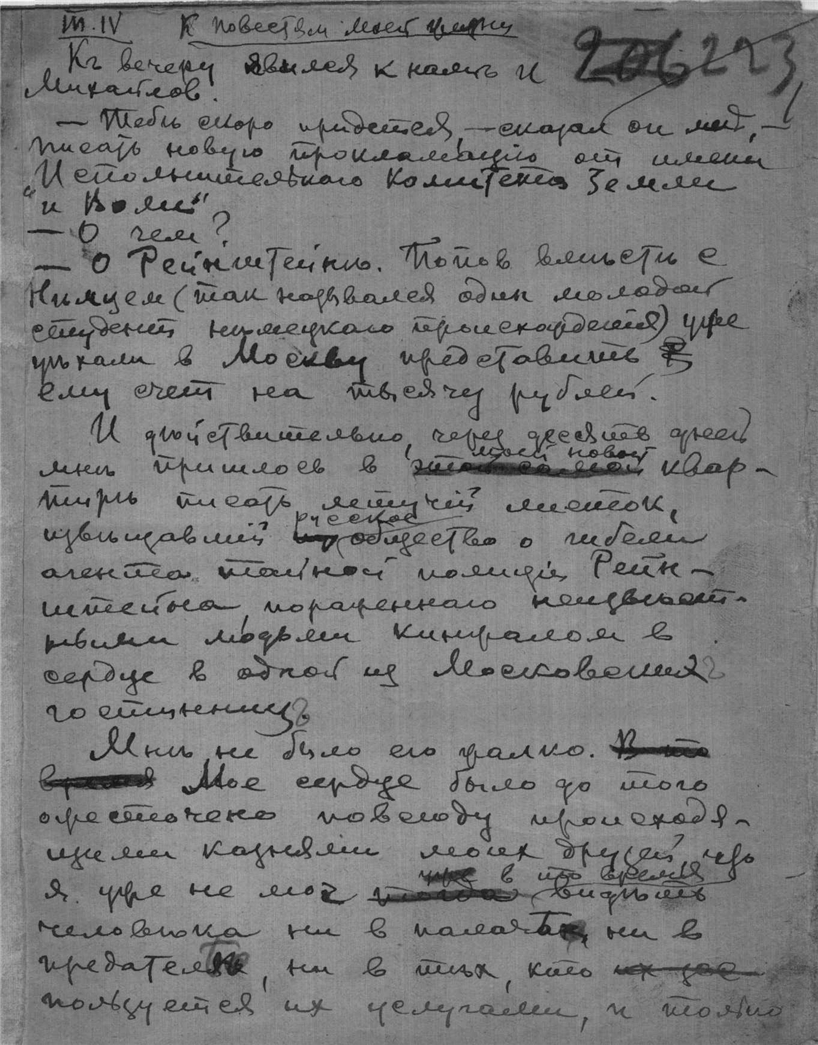 Т. IV К повестям моей жизни
206 223
Къ вечеру явился к намъ и
Михайлов.
— Тебѣ скоро придется, — сказал он мнѣ, —
писать новую прокламацію от имени
"Исполнительнаго Комитета Земли
и Воли"
— О чем?
— О Рейнштейнѣ. Попов вмѣстѣ с
Нѣмцем (так назывался один молодой
студент нѣмецкаго происхожденія) уже
уѣхали в Москву предоставить
ему счет на тысячу рублей.
И дѣйствительно, через десять дней
моей новой
мнѣ пришлось в этой самой квар-
тирѣ писать летучій листок,
русское
извѣщавшій общество о гибели
агента тайной полиціи Рейн-
штейна, пораженнаго неизвѣст-
ными людьми кинжалом в
сердце в одной из Московских
гостинниц.
Мнѣ не было его жалко. В то
время Мое сердце было до того
ожесточено повсюду происходя-
щими казнями моих друзей, что
уже в то время
я уже не мог тогда видѣть
человѣка ни в палачѣ, ни в
предателѣ, ни в тѣх, кто
пользуется их услугами, и только